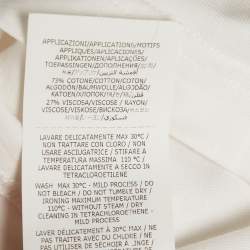 APPLICAZIONI/APPLICATIONS/MOTIFS
APPLIQUES/APLICACIONES/
APLICAÇÕES/APPLIKATIONEN/
TOEPASSINGEN/ДОПОЛНЕНИЯ/
73% COTONE/COTTON/COTON/
ALGODÓN/BAUMWOLLE/ALGODÃO/
KATOEN/ХЛОПОК/
27% VISCOSA/VISCOSE / RAYON/
VISKOSE/VISCOSA/ВИСКОЗА/
LAVARE DELICATAMENTE MAX 30°C /
NON TRATTARE CON CLORO / NON
USARE ASCIUGATRICE / STIRARE A
TEMPERATURA MASSIMA 110 °C /
LAVARE DELICATAMENTE A SECCO IN
TETRACLOROETILENE
WASH MAX 30°C - MILD PROCESS / DO
NOT BLEACH / DO NOT TUMBLE DRY /
IRONING MAXIMUM TEMPERATURE
110°C - WITHOUT STEAM / DRY
CLEANING IN TETRACHLOROETHENE
- MILD PROCESS
LAVER DÉLICATEMENT À 30°C MAX /
PAS TRAITER AVEC DU CHLORE / NE
PAS UTILISER DE SÉCHOIR À LINGE /